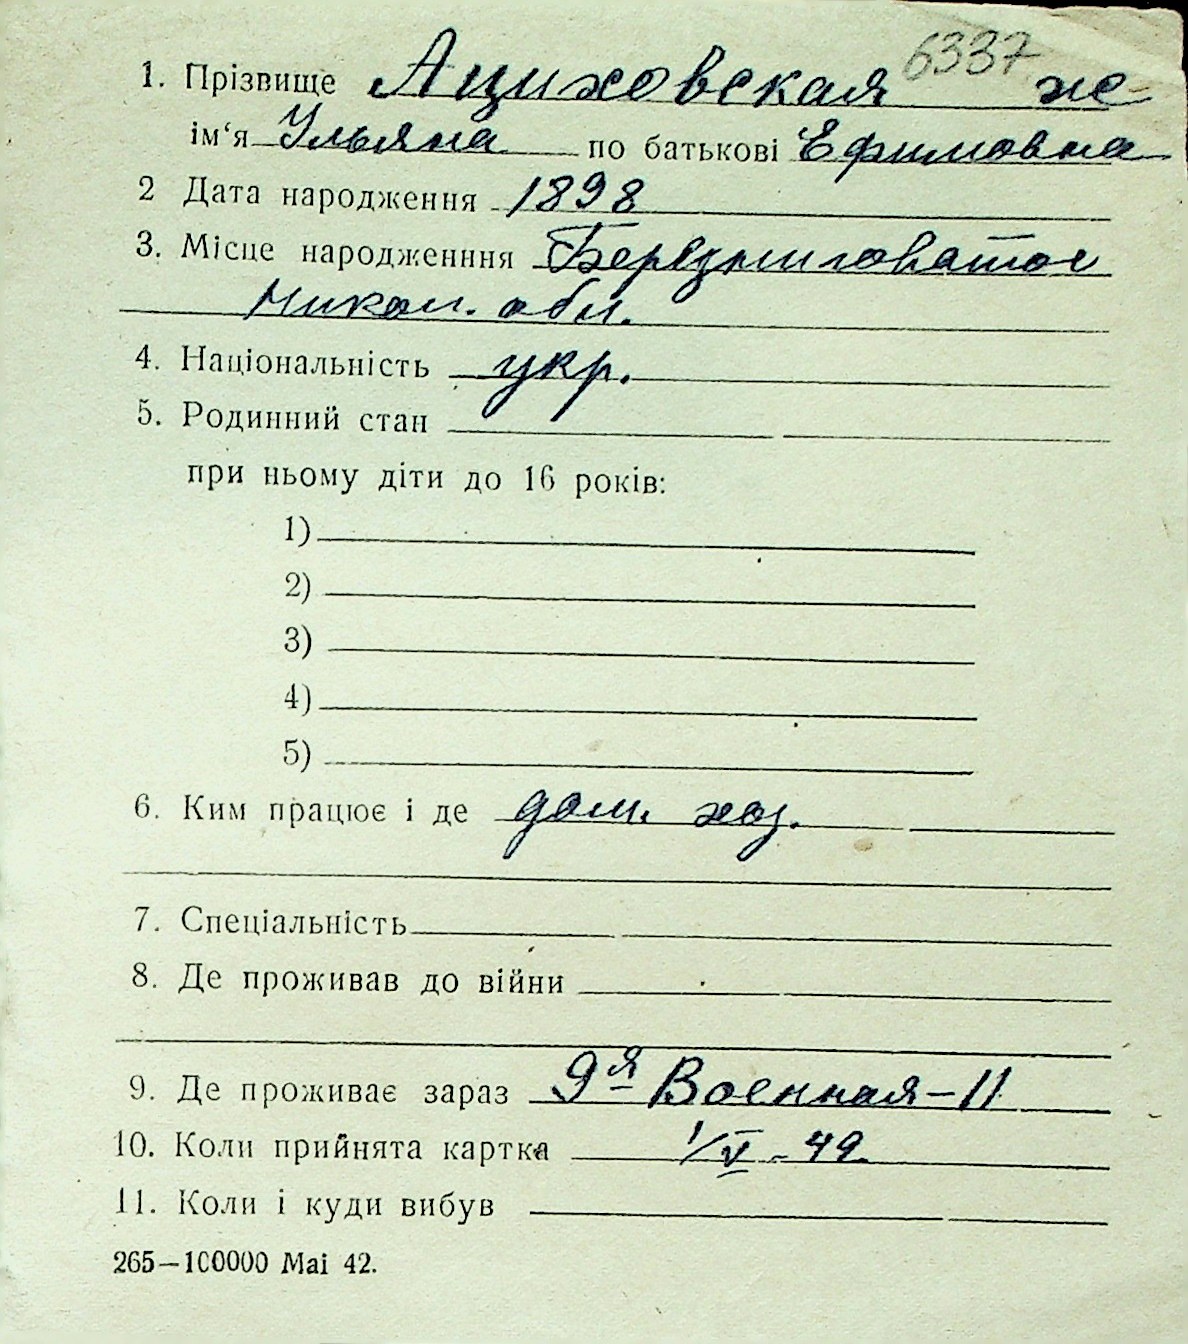 6337
1. Прізвище Ациховская же
ім‘я Ульяна по батькові Ефимовна
2 Дата народження 1898
3. Місце народженння Березниговатое
Никол. обл.
4. Національність укр.
5. Родинний стан
при ньому діти до 16 років:
1)
2)
3)
4)
5)
6. Ким працює і де дом. хоз.
7. Спеціальність
8. Де проживав до війни
9. Де проживає зараз 9я Военная-11
10. Коли прийнята картка 1/V - 42
11. Коли і куди вибув
265—100000 Маі 42.